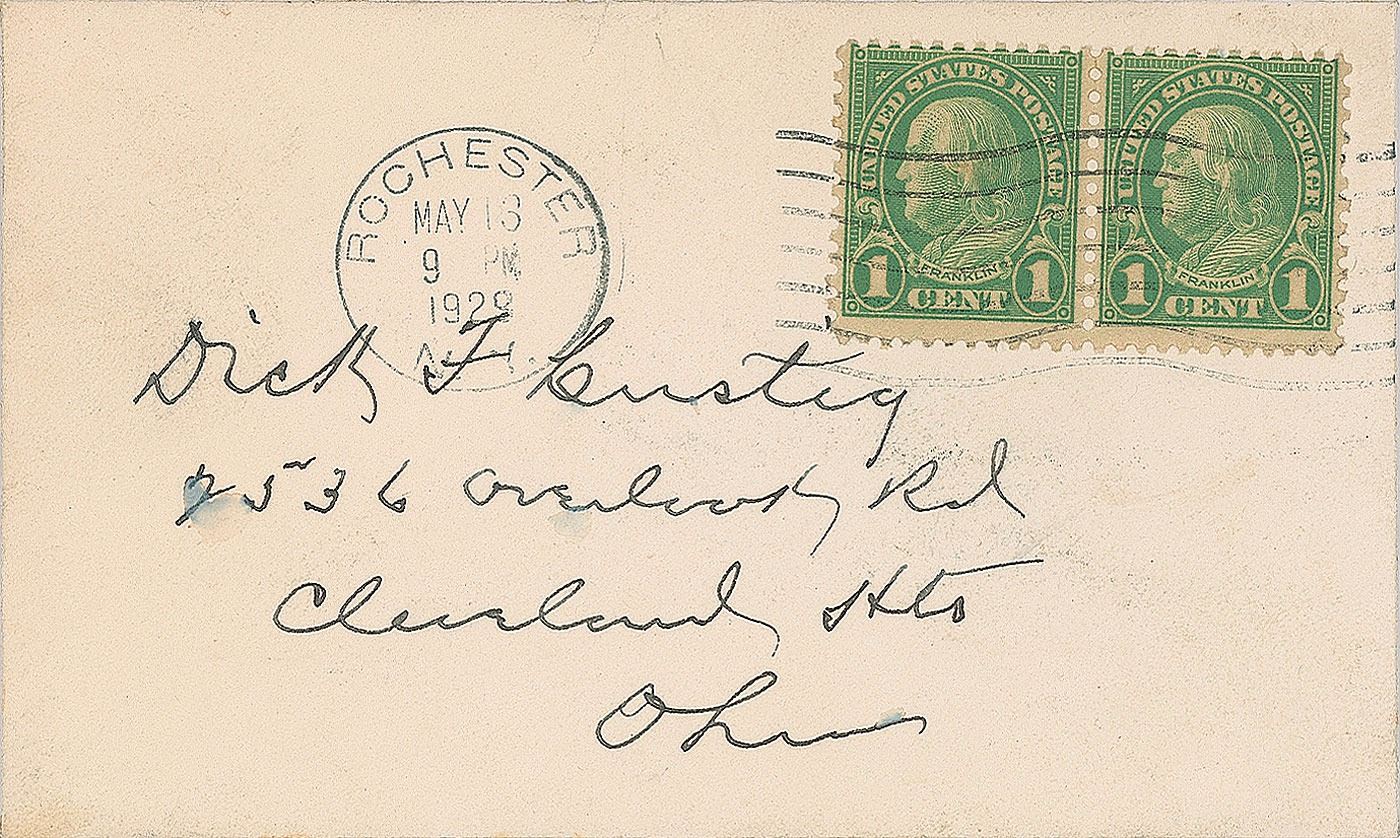 UNITED STATES POSTAGE
FRANKLIN
1 CENT 1
UNITED STATES POSTAGE
FRANKLIN
1 CENT 1
ROCHESTER
MAY 13
9 PM
1929
N.Y.
Dick F
2536 Overlook Rd
Cleveland Hts
Ohio